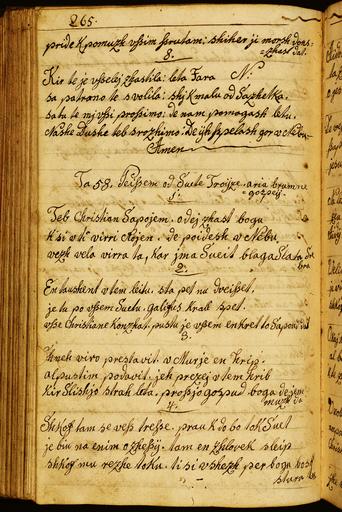 265.
pride k pomuzk vssim svutam: skiher je morsk dons=
=zhast dal.
8.
Kir te je vsselej zhastila: leta Fara N:
sa patrono te svolila: skj k mala od Sazhetka.
sa tu te mj vsi prossimo: de nam pomogash letu.
Nashe Dushe teb srozhimo: De ijh spelash gor v Nebu.
Amen
Ta 58. Peissem od Svete Troijze. aria brumne
gospejj.
1.
Teb Christian sapojem. odej zhast bogu
K si v ti virri rojen. de poidesh v Nebu
vezh vela virra ta, kar jma Sveit blaga Slata Sre
bra
2.
En taushent v tem leitu. sta pet nu dreisset,
je tu po vssem Svetu. galifus Krail spet.
vsse Christiane konzhat, pustu je vsem enkret to Sapovidat
3.
Hozeh viro prestavit v Murje en Hrip.
al pustim podavit. jeh prezej v tem hrib
Kir Slishjo strah leta, prossjo gospud boga de jem
muzh da
4.
Shkoff tam se vess tresse. prau K do bo toh Svet
je biu na enim ozhessij. tam en zhlovek sleip
shkoff mu rezhe toku. ti si v shezh per bogu
stura